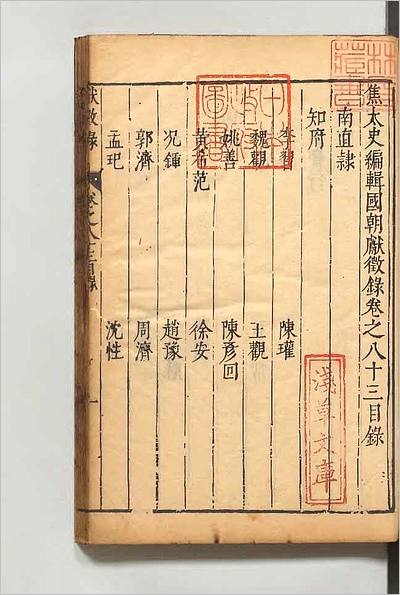 焦太史編輯國朝獻徵錄卷之八十三目錄
南直隷
知府
李習 陳瓘
魏觀 王觀
姚善 陳彥回
黃希范 徐安
况鍾 趙豫
郭濟 周濟
孟玘 沈性
獻徵錄 卷之八十三目錄 一
淺草文庫